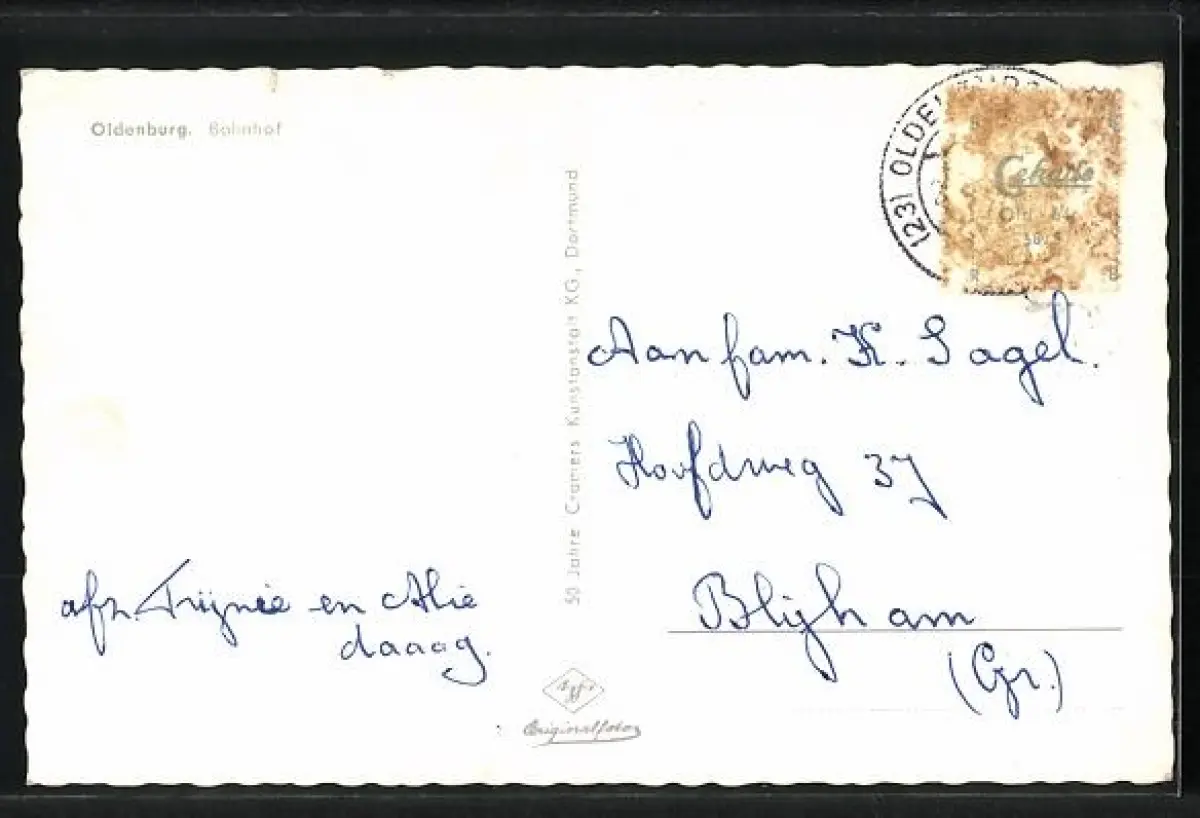 Oldenburg. Bahnhof
(23) OLDENBURG
Cekade
50 Jahre Cramers Kunstanstalt KG., Dortmund
Aan fam. K. Sagel.
Hoofdweg 37
Blijham
(Gr.)
afz. Trijnie en Alie
daaag.
Agfa
Originalfoto